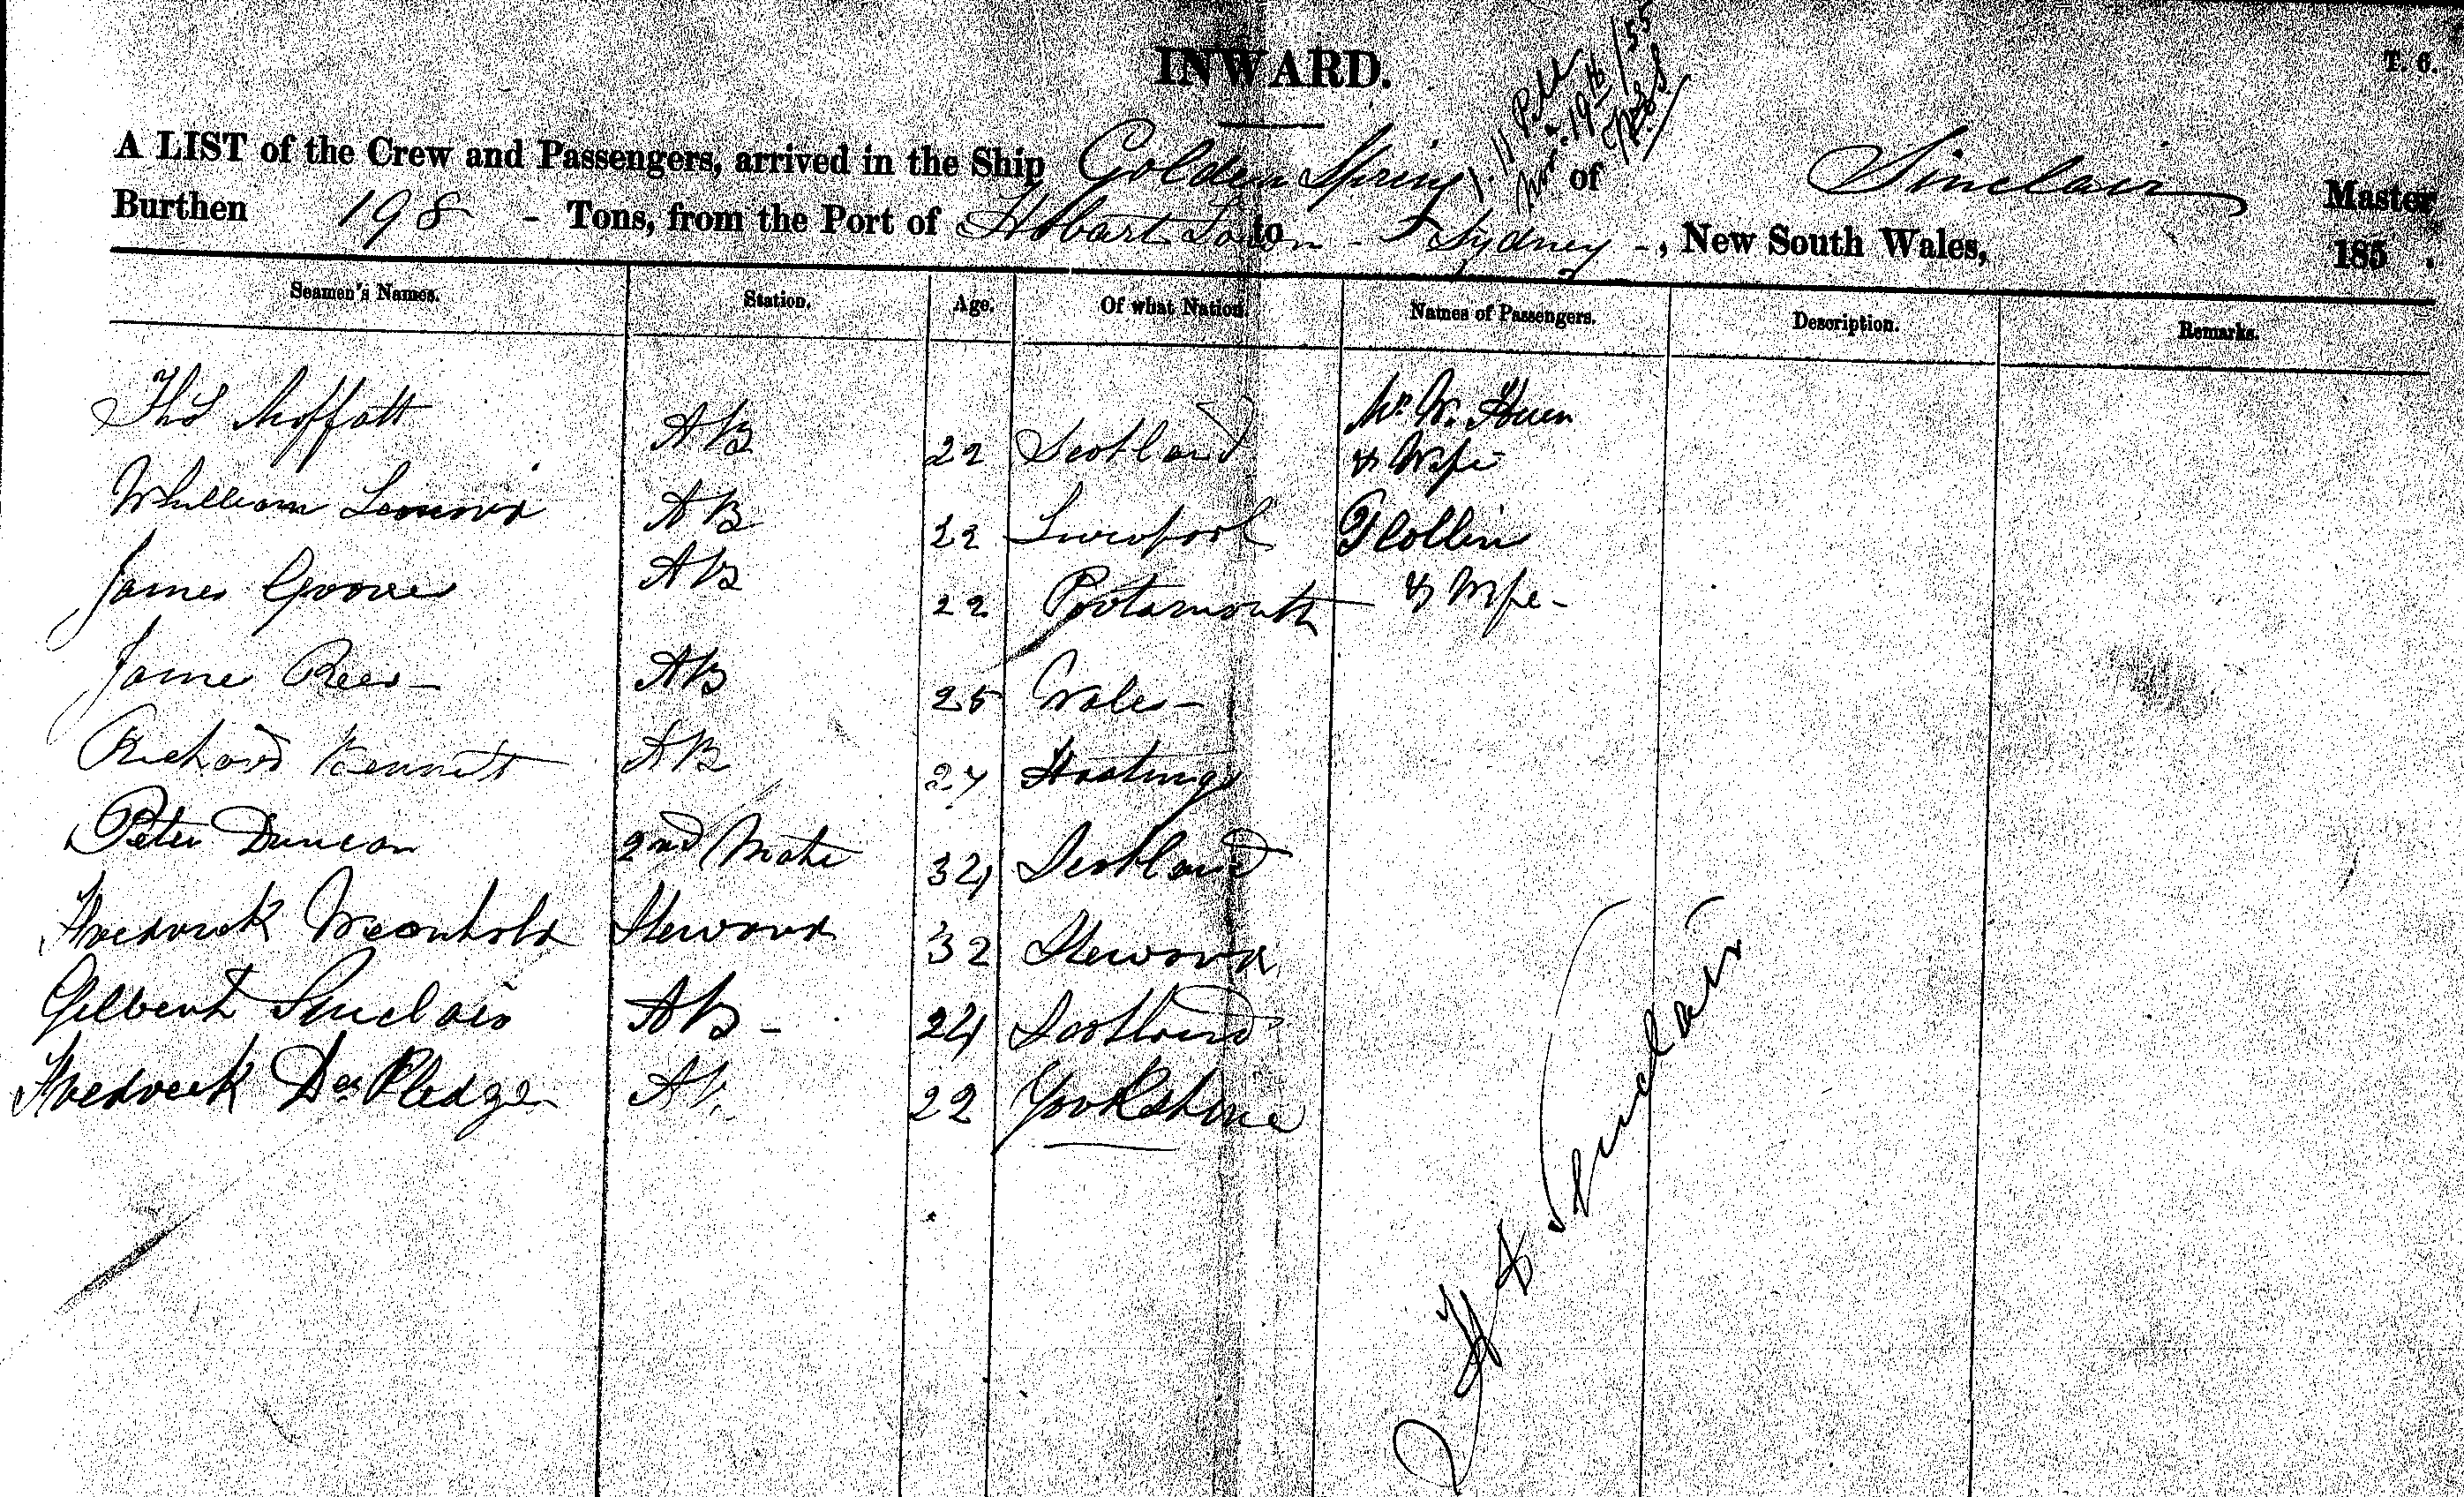 INWARD.
T. 6.
Nov. 19th/55
A LIST of the Crew and Passengers, arrived in the Ship Golden Spring of Sinclair Master
Burthen 198 - Tons, from the Port of Hobart Town to Sydney -, New South Wales, 185 .
Seamen's Names. Station. Age. Of what Nation. Names of Passengers. Description. Remarks.
Thos Moffatt AB 22 Scotland Mr W.
& Wife
Whilliam AB 22 Liverpool Collin
James Groves AB 22 Portsmouth & Wife -
Jame Rees - AB 25 Wales -
Richard Bennett AB 27 Hastings
Peter Duncan 2nd Mate 34 Scotland
Frederick Steward 32 Steward
Gilbert Sinclair AB - 24 Scotland
Frederick De Pledge AB 22 Yorkshire
Sinclair